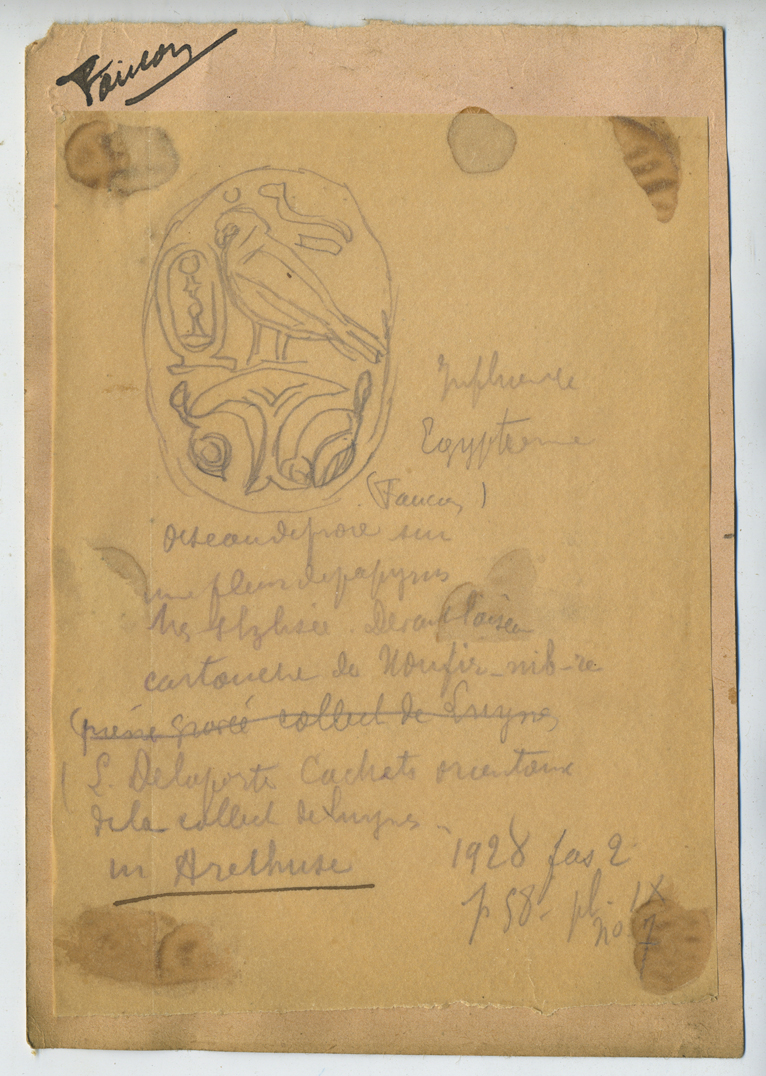 Faucon
Influence
Egyptienne
(Faucon)
oiseau de proie sur
une fleur de papyrus
très stylisée. Devant l'oiseau
cartouche de Noufir-nib-re
(pierre gravée collect de Luynes
(L. Delaporte Cachets orientaux
de la collect de Luynes -
in Arethuse
1928 fas 2
p 58 - pl. IX
no 7